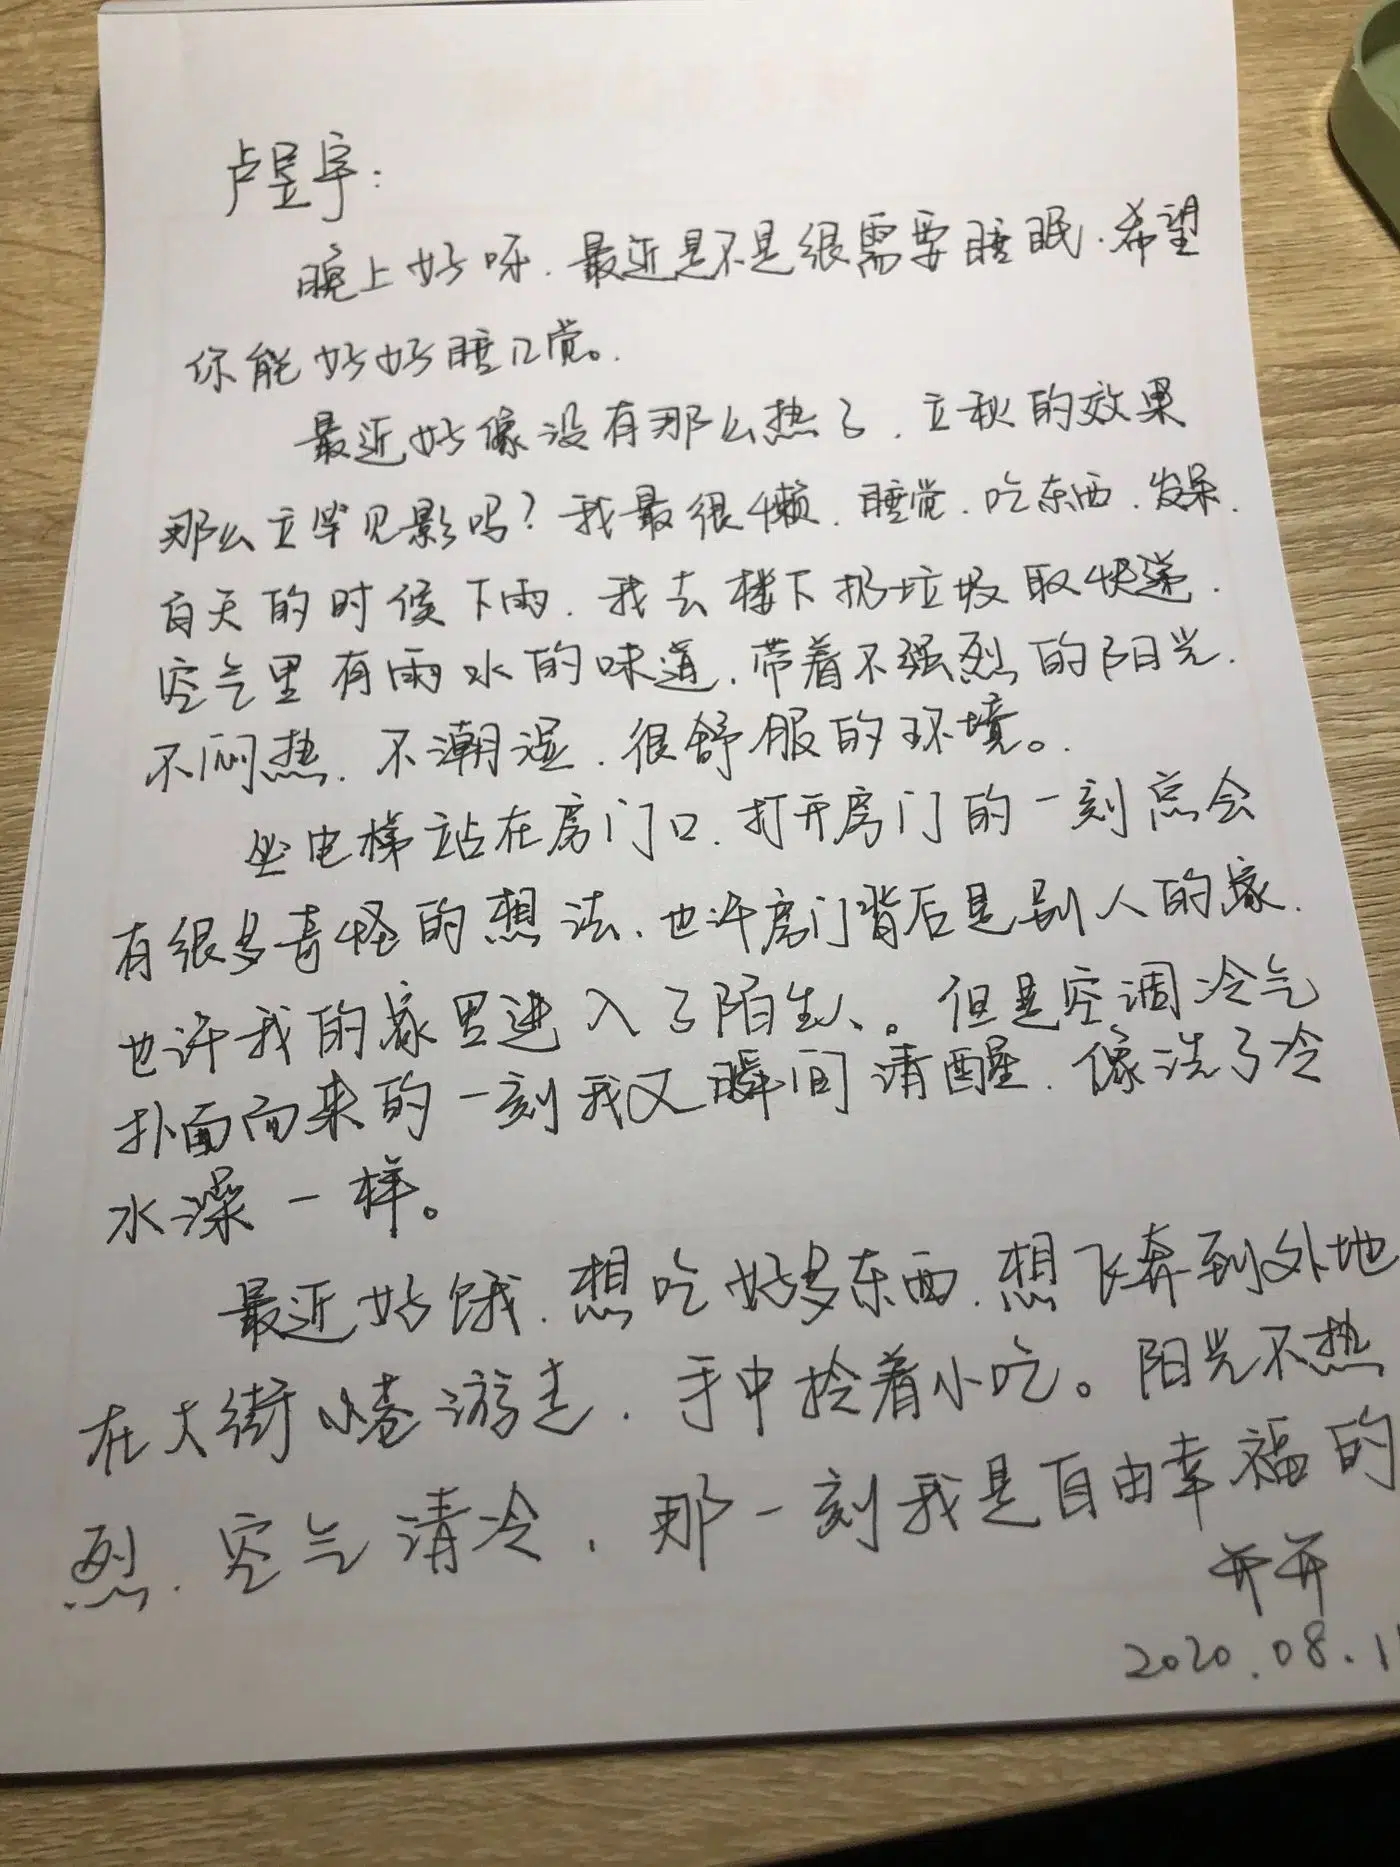 卢昱宇:
晚上好呀.最近是不是很需要睡眠.希望
你能好好睡几觉。
最近好像没有那么热了.立秋的效果
那么立竿见影吗?我最很懒.睡觉.吃东西.发呆.
白天的时候下雨.我去楼下扔垃圾取快递.
空气里有雨水的味道.带着不强烈的阳光.
不闷热.不潮湿.很舒服的环境。
坐电梯站在房门口.打开房门的一刻总会
有很多奇怪的想法.也许房门背后是别人的家.
也许我的家里进入了陌生人。但是空调冷气
扑面而来的一刻我又瞬间清醒.像洗了冷
水澡一样。
最近好饿.想吃好多东西.想飞奔到外地
在大街小巷游走.手中拎着小吃。阳光不热
烈.空气清冷.那一刻我是自由幸福的
开开
2020.08.1